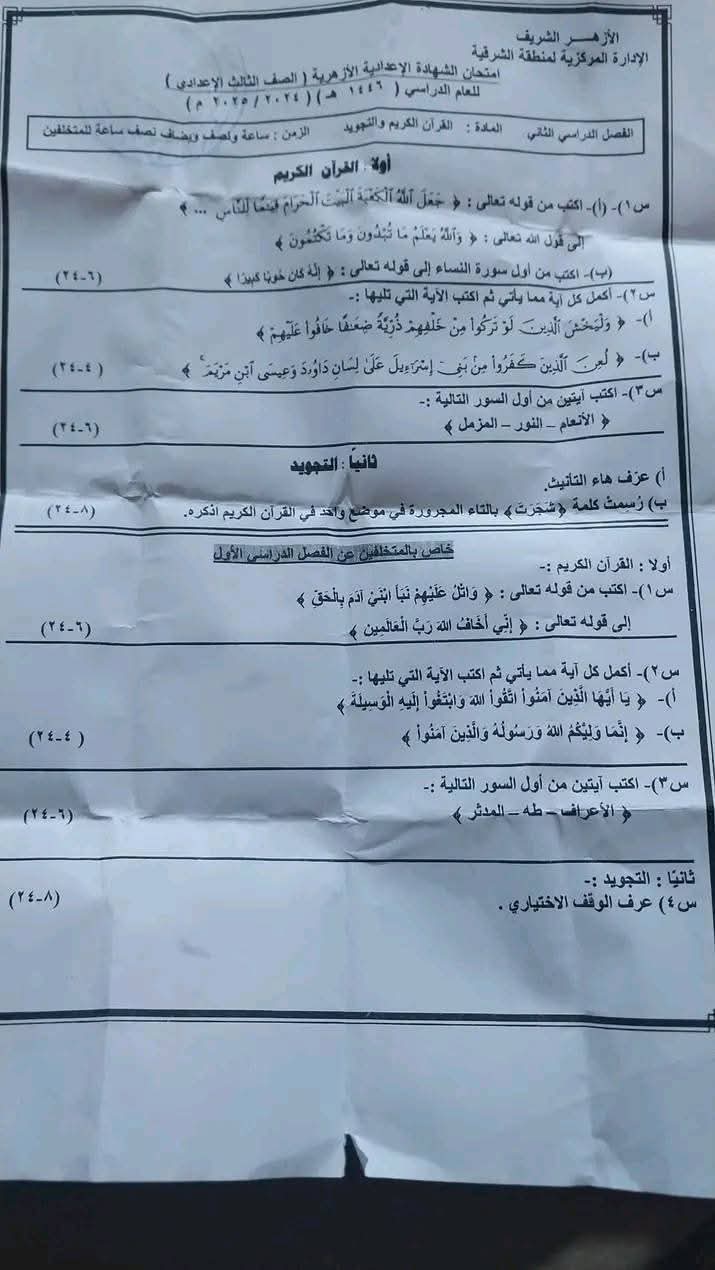 الأزهـــر الشريف
الإدارة المركزية لمنطقة الشرقية
امتحان الشهادة الإعدادية الأزهرية ( الصف الثالث الإعدادي )
للعام الدراسي ( ١٤٤٦ هـ ) ( ٢٠٢٤ / ٢٠٢٥ م )
الفصل الدراسي الثاني المادة : القرآن الكريم والتجويد الزمن : ساعة ونصف ويضاف نصف ساعة للمتخلفين
أولا : القرآن الكريم
س١)- (أ)- اكتب من قوله تعالى : ﴿ جَعَلَ اللَّهُ الْكَعْبَةَ الْبَيْتَ الْحَرَامَ قِيَامًا لِّلنَّاسِ ... ﴾
إلى قول الله تعالى : ﴿ وَاللَّهُ يَعْلَمُ مَا تُبْدُونَ وَمَا تَكْتُمُونَ ﴾
(ب)- اكتب من أول سورة النساء إلى قوله تعالى : ﴿ إِنَّهُ كَانَ حُوبًا كَبِيرًا ﴾ (٦-٢٤)
س٢)- أكمل كل آية مما يأتي ثم اكتب الآية التي تليها :-
أ)- ﴿ وَلْيَخْشَ الَّذِينَ لَوْ تَرَكُوا مِنْ خَلْفِهِمْ ذُرِّيَّةً ضِعَافًا خَافُوا عَلَيْهِمْ ﴾
ب)- ﴿ لُعِنَ الَّذِينَ كَفَرُوا مِنْ بَنِي إِسْرَائِيلَ عَلَىٰ لِسَانِ دَاوُودَ وَعِيسَى ابْنِ مَرْيَمَ ۚ ﴾ (٤-٢٤ )
س٣)- اكتب آيتين من أول السور التالية :-
﴿ الأنعام – النور – المزمل ﴾ (٦-٢٤)
ثانيًا : التجويد
أ) عرّف هاء التأنيث.
ب) رُسِمتْ كلمة ﴿شَجَرَتَ﴾ بالتاء المجرورة في موضع واحد في القرآن الكريم اذكره. (٨-٢٤)
خاص بالمتخلفين عن الفصل الدراسي الأول
أولا : القرآن الكريم :-
س١)- اكتب من قوله تعالى : ﴿ وَاتْلُ عَلَيْهِمْ نَبَأَ ابْنَيْ آدَمَ بِالْحَقِّ ﴾
إلى قوله تعالى : ﴿ إِنِّي أَخَافُ اللهَ رَبَّ الْعَالَمِين ﴾ (٦-٢٤)
س٢)- أكمل كل آية مما يأتي ثم اكتب الآية التي تليها :-
أ)- ﴿ يَا أَيُّهَا الَّذِينَ آمَنُواْ اتَّقُواْ اللهَ وَابْتَغُواْ إِلَيهِ الْوَسِيلَةَ ﴾
ب)- ﴿ إِنَّمَا وَلِيُّكُمُ اللهُ وَرَسُولُهُ وَالَّذِينَ آمَنُواْ ﴾ (٤-٢٤ )
س٣)- اكتب آيتين من أول السور التالية :-
﴿ الأعراف – طه – المدثر ﴾ (٦-٢٤)
ثانيًا : التجويد :-
س٤) عرف الوقف الاختياري . (٨-٢٤)